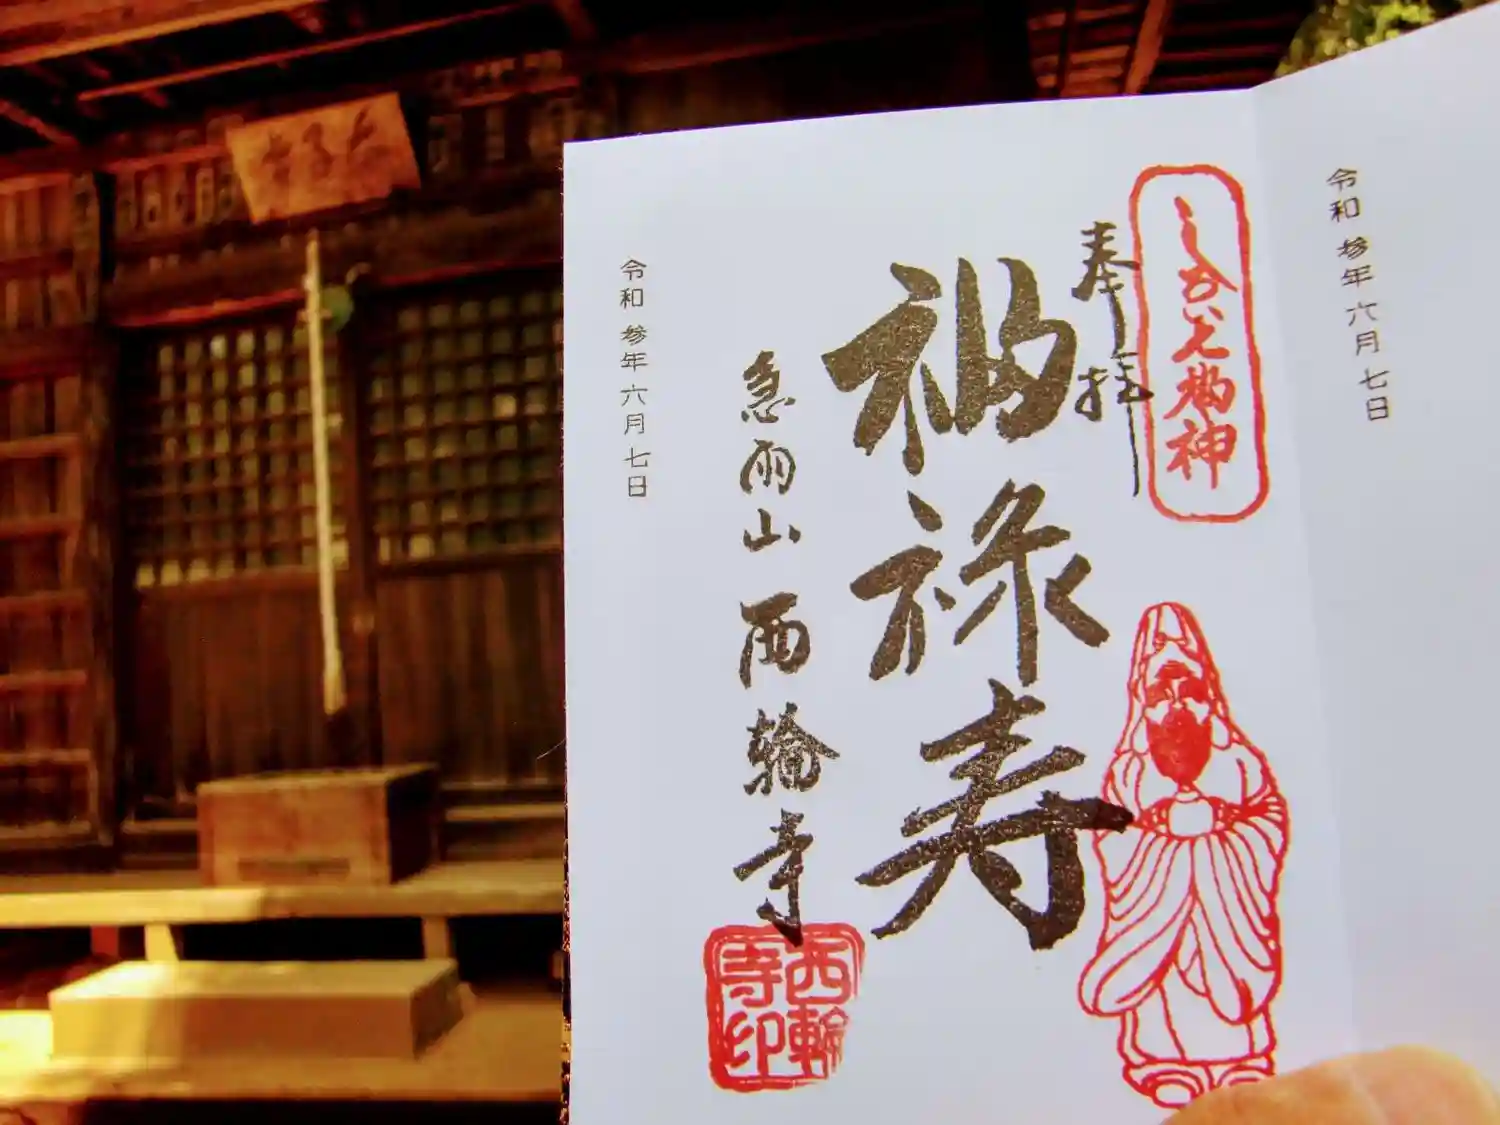 令和参年六月七日
しあわせ福神
奉拝
福禄寿
急雨山 西輪寺
西輪寺印
令和参年六月七日